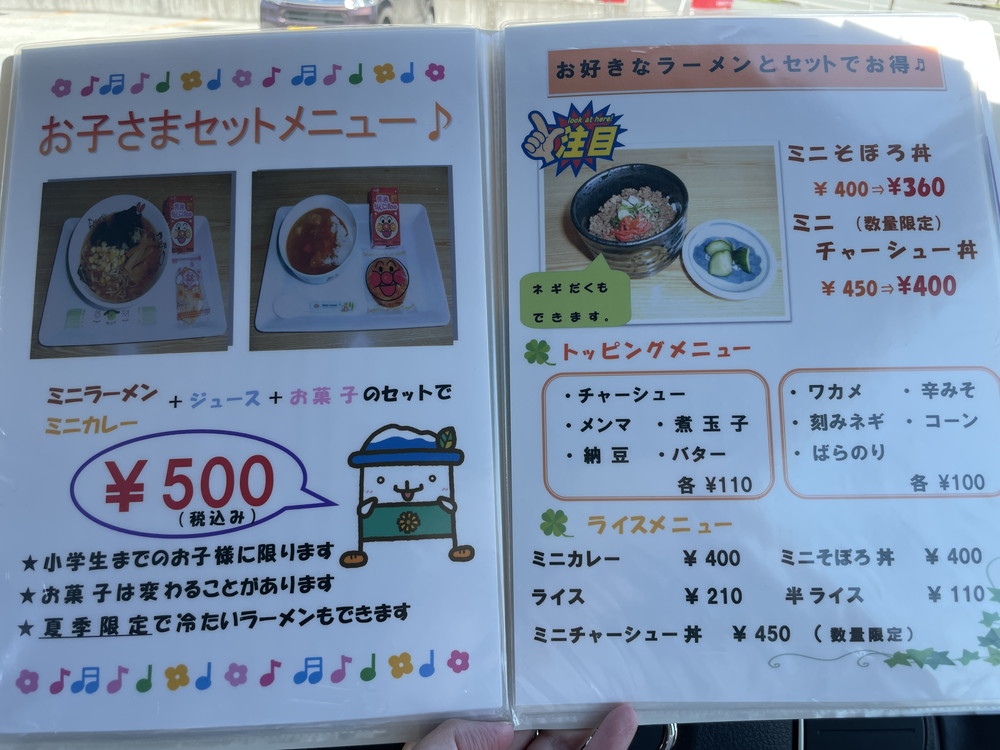 お子さまセットメニュー♪
ミニラーメン
ミニカレー
+ジュース+お菓子のセットで
¥500
(税込み)
★小学生までのお子様に限ります
★お菓子は変わることがあります
★夏季限定で冷たいラーメンもできます
お好きなラーメンとセットでお得♬
look at here!
注目
ミニそぼろ丼
¥400⇒¥360
ミニ (数量限定)
チャーシュー丼
¥450⇒¥400
ネギだくも
できます。
トッピングメニュー
・チャーシュー
・メンマ ・煮玉子
・納豆 ・バター
各 ¥110
・ワカメ ・辛みそ
・刻みネギ ・コーン
・ばらのり
各 ¥100
ライスメニュー
ミニカレー ¥400 ミニそぼろ丼 ¥400
ライス ¥210 半ライス ¥110
ミニチャーシュー丼 ¥450 (数量限定)